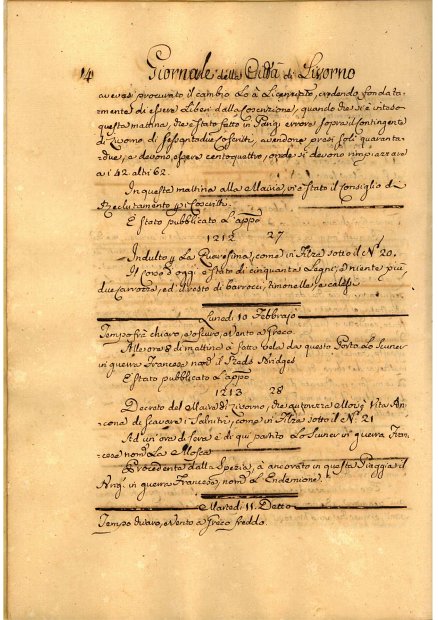 14 Giornale della Città di Livorno
aversi procurato il cambio Lo à Licenziato, credendo fondata=
mente di essere Liberi dalla Coscrizione, quando che si è inteso
questa mattina, che è stato fatto in Parigi errore sopra il contingente
di Uomo di sessantadue Coscritti, avendone presi soli quaranta=
due, a devono essere centoquattro, onde si devono rimpiazzare
a i 42 altri 62.
In questa mattina alla Mairia, vi è stato il Consiglio di
Reclutamento p i Coscritti.
È stato pubblicato L'appo
1212 27
Indulto p La Quaresima, come in Filza sotto il No. 20.
Il Corso d'oggi è stato di cinquanta Legni, a niente più
due carrozze, ed il resto di barrocci, timonelle, e calessi
Lunedì 10 Febbrajo
Tempo frà chiaro, e oscuro, e Vento a Greco
Alle ore 8 di mattina à fatto Vela da questo Porto Lo Scuner
in guerra Francese nomo. il Freds Bridges
È stato pubblicato L'appo
1213 28
Decreto del Maire di Livorno, che autorizza Moisè Vita An=
cona di scavare i Salnitri, come in Filza sotto il No. 21
Ad un'ora di sera è di qui partito Lo Scuner in guerra Fran=
cese nomo. La Mosca
Procedente dalla Spezia, à ancorato in questa Spiaggia il
Brig. in guerra Francese, nomo. L'Endemione.
Martedì 11. Detto
Tempo chiaro, e Vento a Greco freddo.